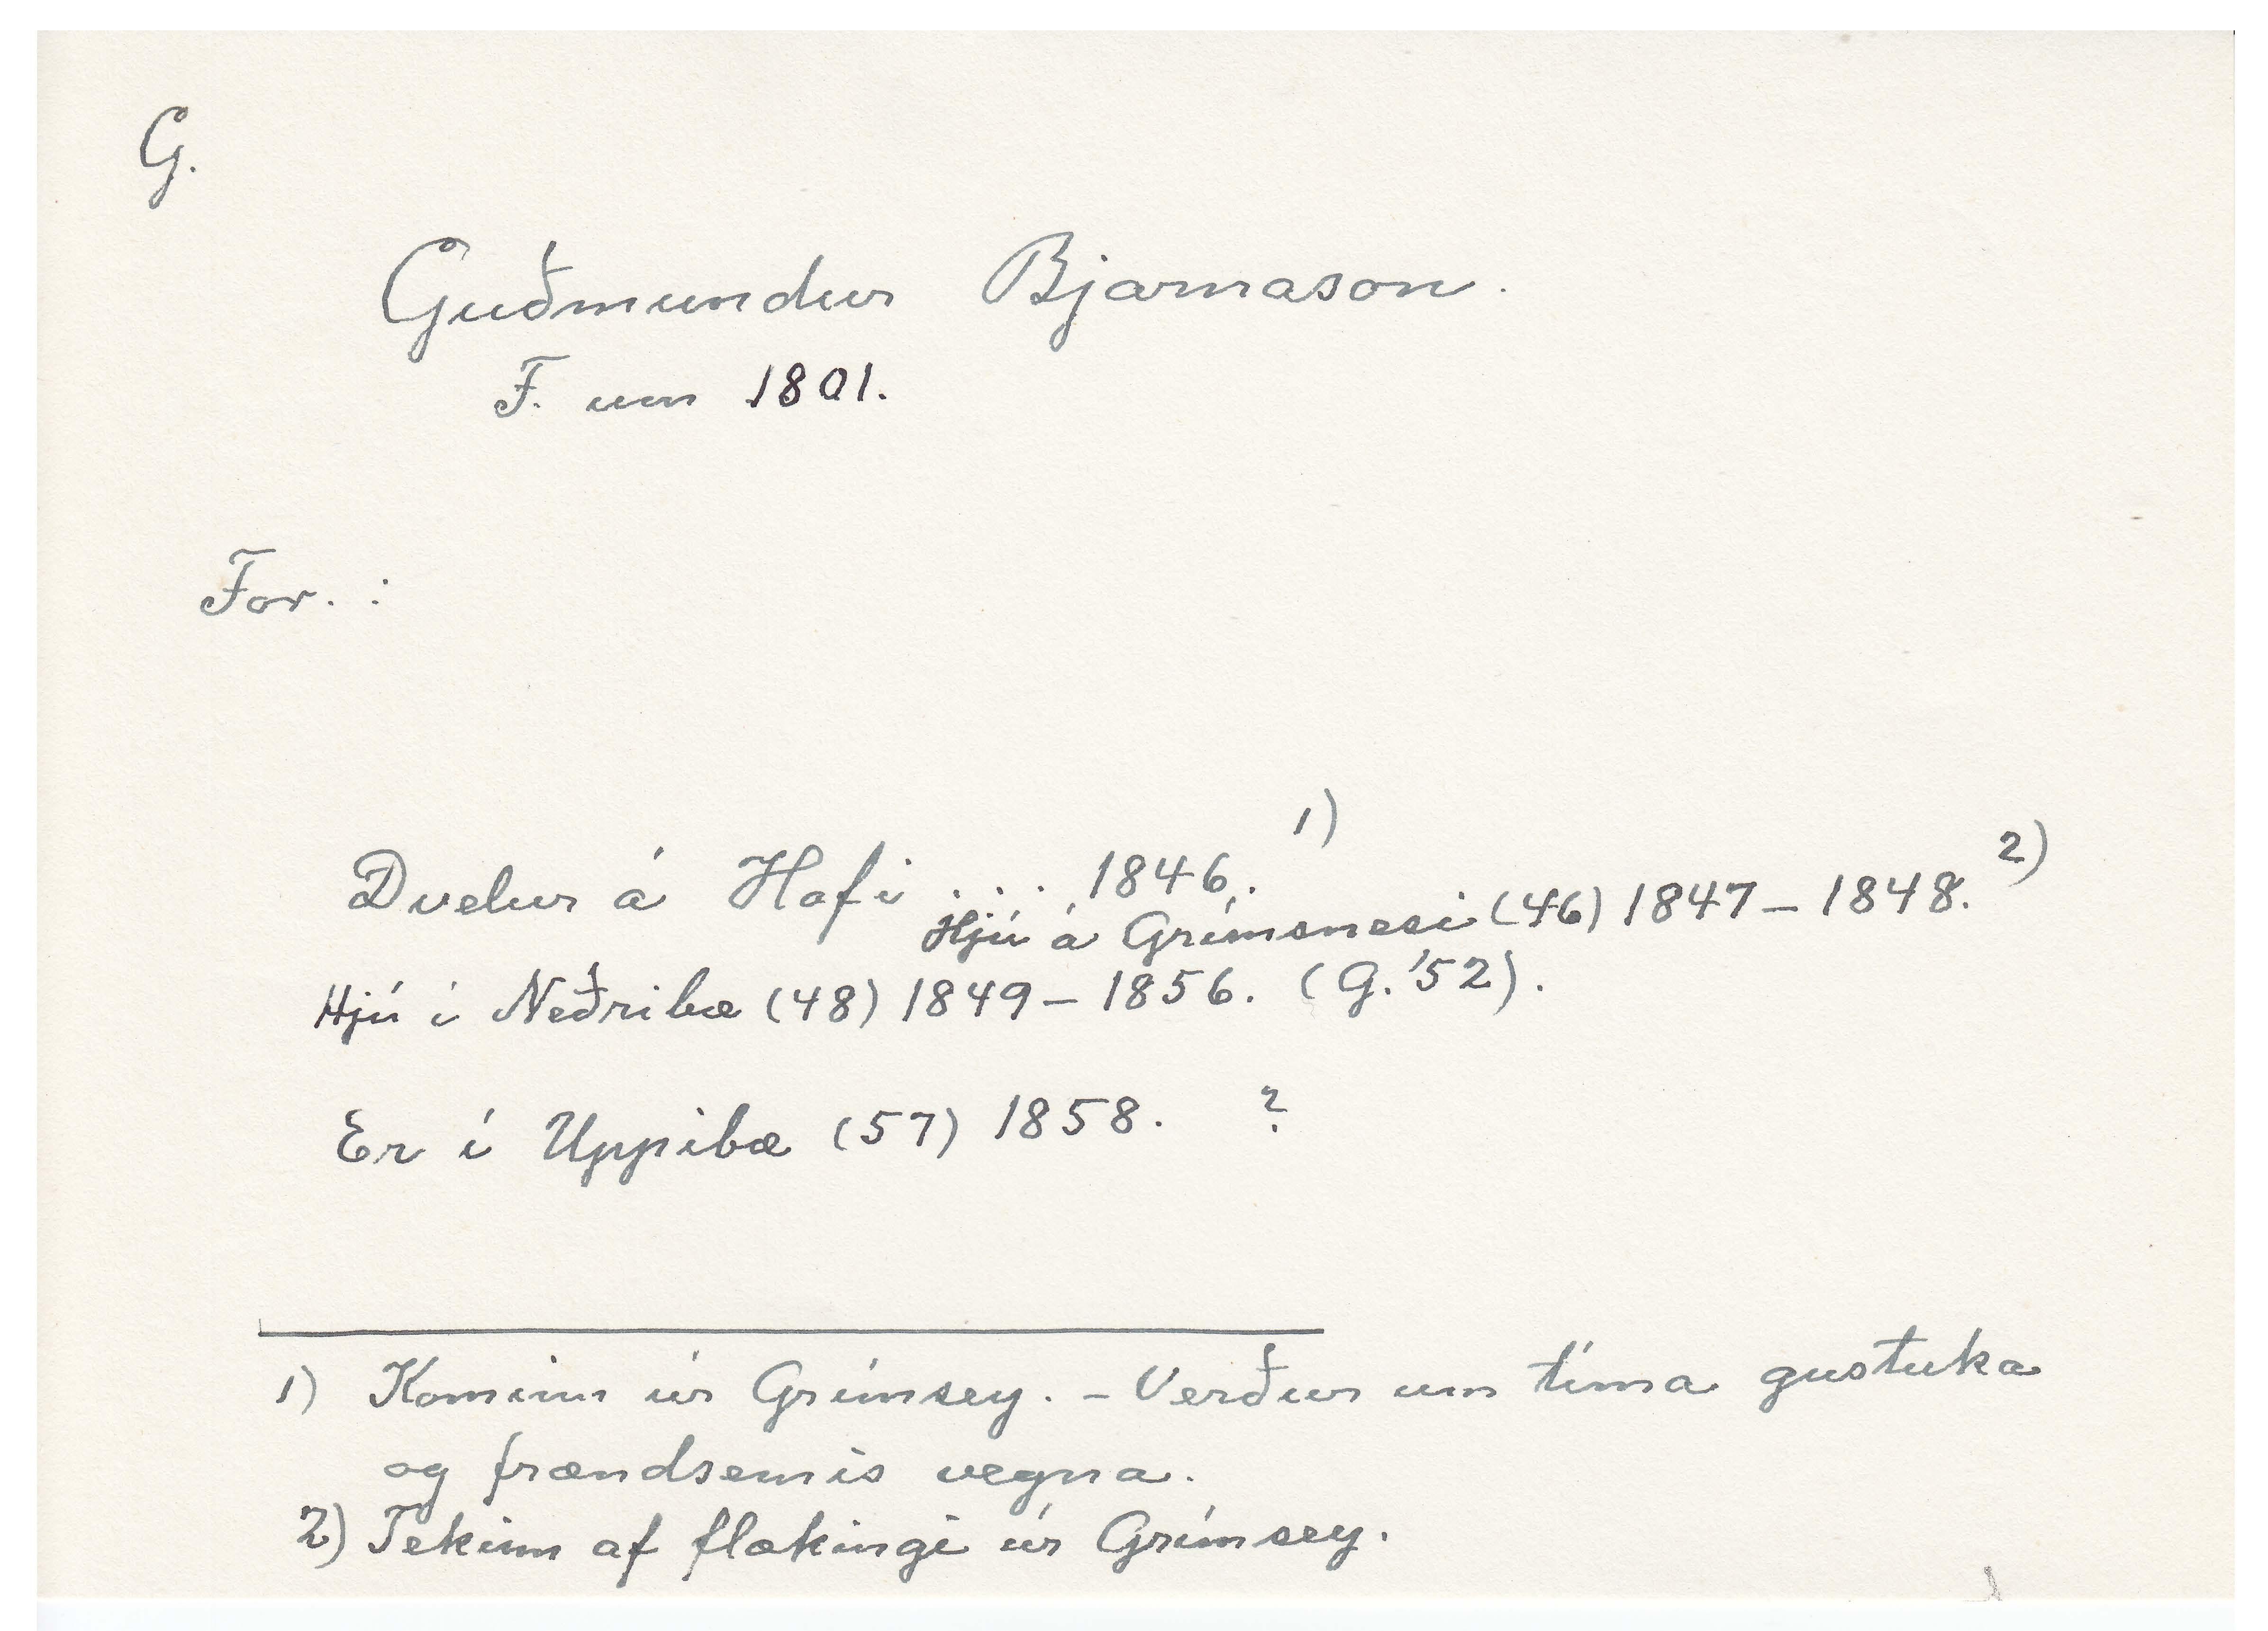 G.
Guðmundur Bjarnason.
F. um 1801.
For. :
Dvelur á Hofi . . . 1846. 1)
Hjú á Grímsnesi (46) 1847 – 1848. 2)
Hjú í Neðribæ (48) 1849 – 1856. (G. '52).
Er í Uppibæ (57) 1858. ?
1) Kominn úr Grímsey. – Verður um tíma gustuka
og frændsemis vegna.
2) Tekinn af flækingi úr Grímsey.